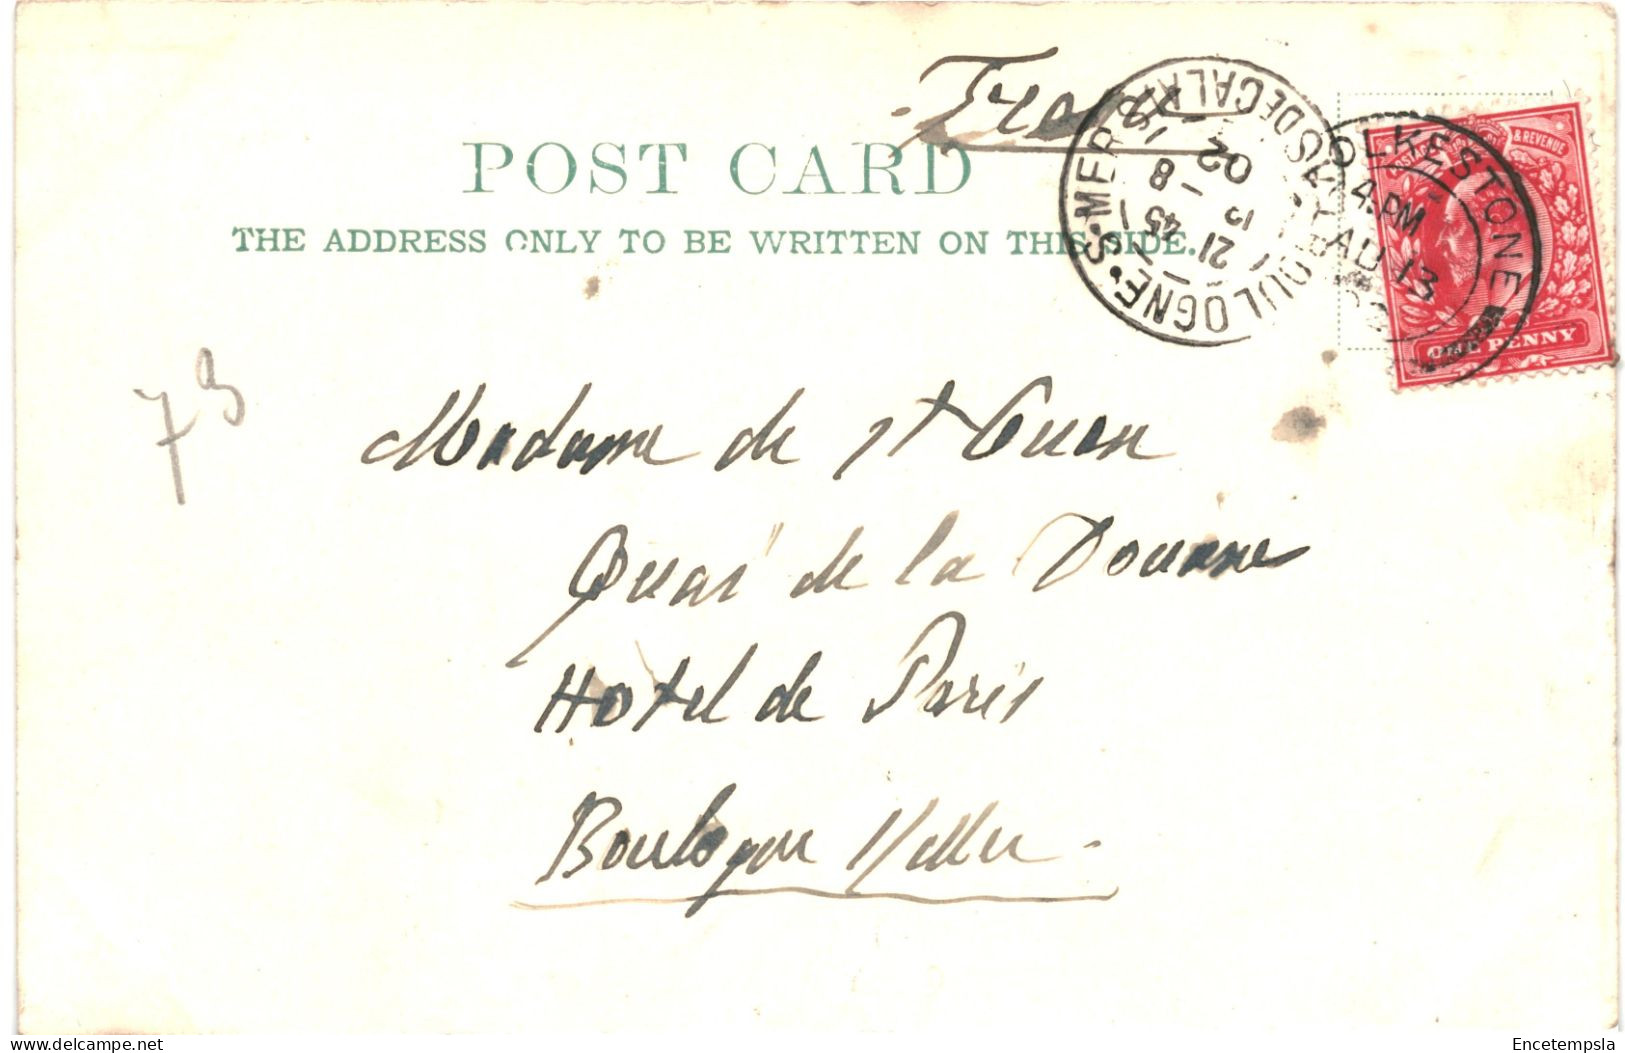 POST CARD
THE ADDRESS ONLY TO BE WRITTEN ON THIS SIDE.
BOULOGNE·S·MER PAS DE CALAIS
21 45
13 - 8
02
FOLKESTONE
4. PM
AU 13
02
& REVENUE
ONE PENNY
73
Madame de St Ouen
Quai de la Douane
Hotel de Paris
Boulogne s/Mer -
delcampe.net
Encetempsla